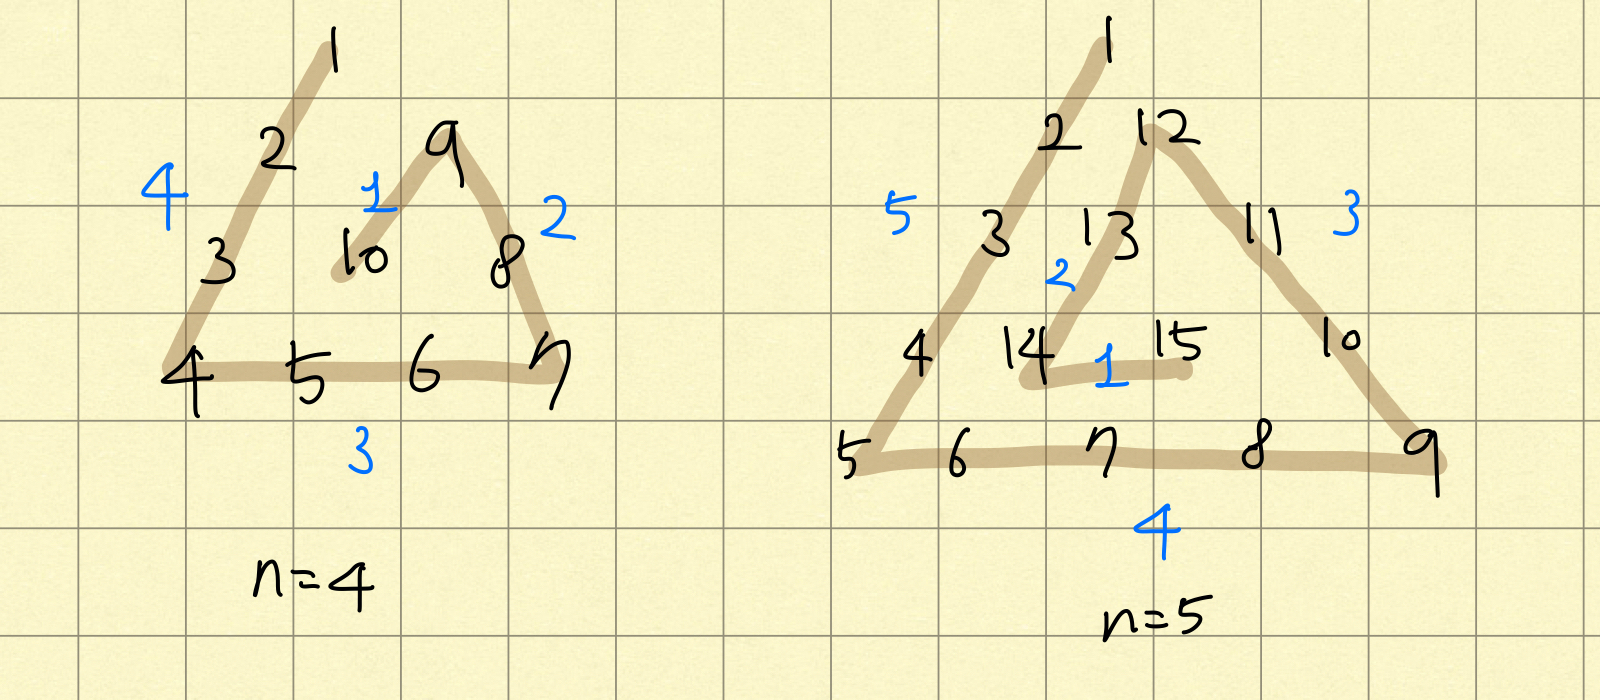 1
2 9
4 1 2
3 10 8
4 5 6 7
3
n=4
1
2 12
5 3 13 11 3
2
4 14 1 15 10
5 6 7 8 9
4
n=5